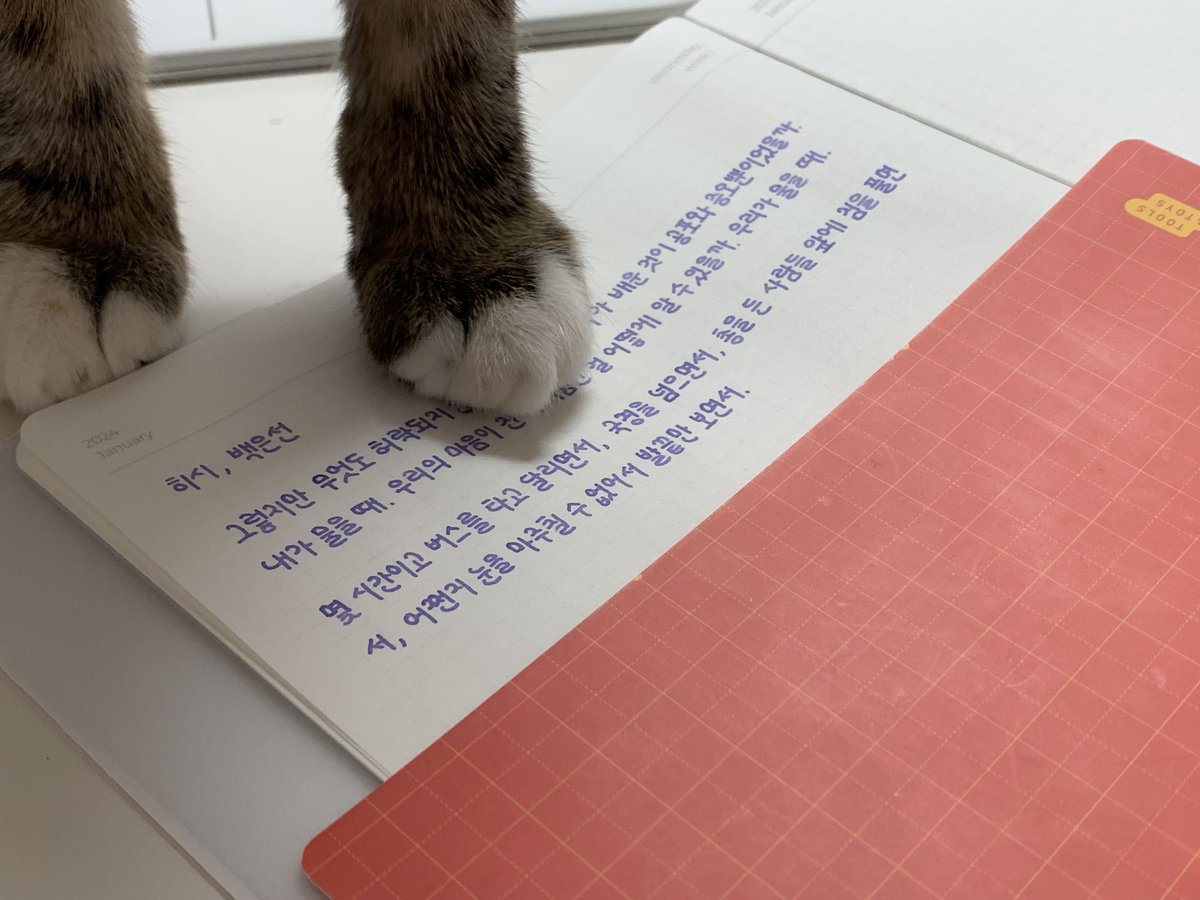 2024
January
Wednesday
week 1
하시, 백은선
그렇지만 무엇도 허락되지 배운 것이 공포와 증오뿐이었을까.
내가 물을 때. 우리의 마음이 어떻게 알 수 있을까. 우리가 물을 때.
몇 시간이고 버스를 타고 달리면서, 국경을 넘으면서, 총을 든 사람들 앞에 짐을 풀면
서, 어쩐지 눈을 마주칠 수 없어서 발끝만 보면서.
TOOLS
TOYS